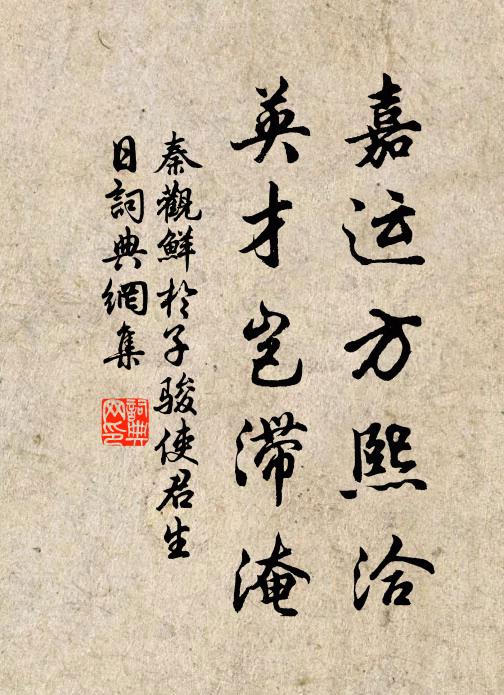 嘉运方熙洽
英才岂滞淹
秦觀鮮於子駿使君生
日詞典網集
詞典网印